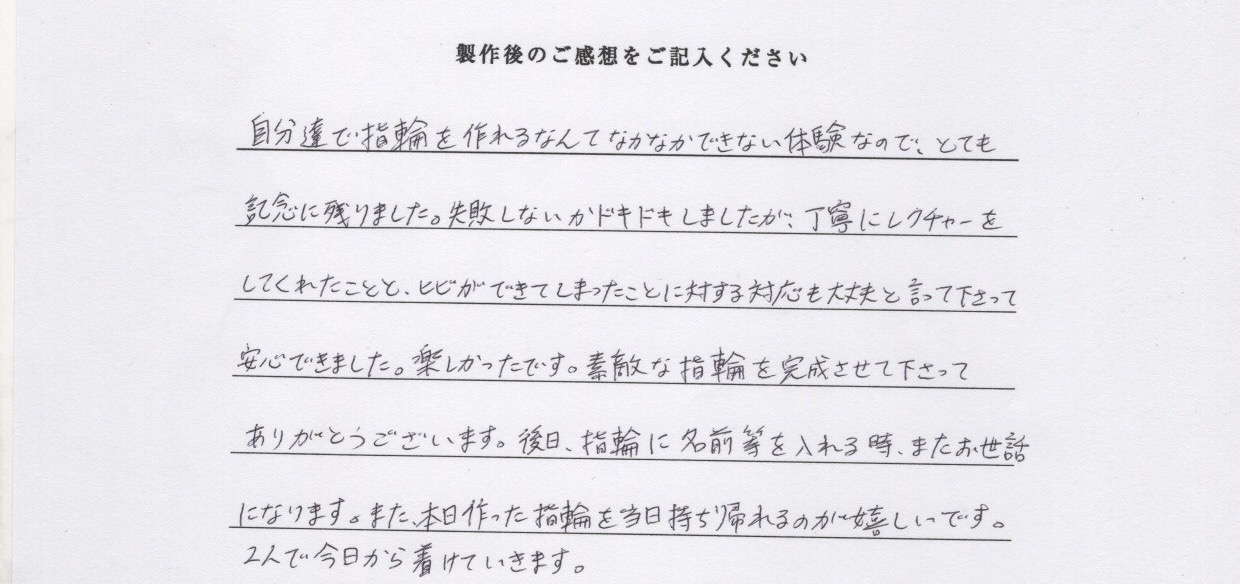 製作後のご感想をご記入ください
自分達で指輪を作れるなんてなかなかできない体験なので、とても
記念に残りました。失敗しないかドキドキしましたが、丁寧にレクチャーを
してくれたことと、ヒビができてしまったことに対する対応も大丈夫と言って下さって
安心できました。楽しかったです。素敵な指輪を完成させて下さって
ありがとうございます。後日、指輪に名前等を入れる時、またお世話
になります。また、本日作った指輪を当日持ち帰れるのが嬉しいです。
2人で今日から着けていきます。